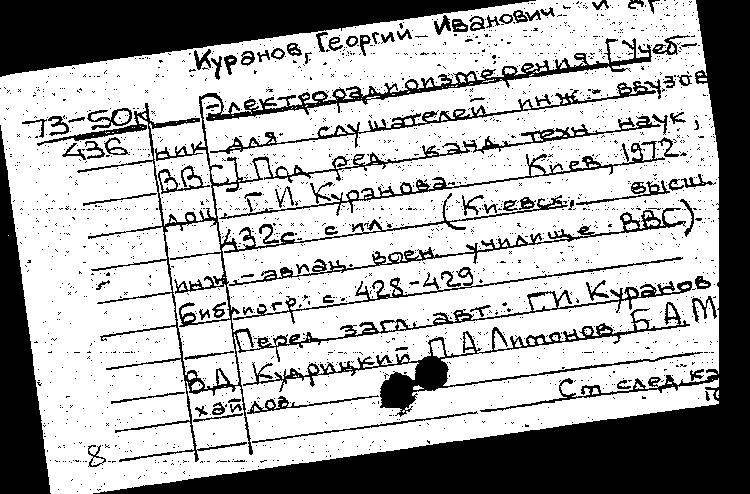 Куранов, Георгий Иванович и др
73-50к
436
Электрорадиоизмерения. [Учеб-
ник для слушателей инж.- ввузов
ВВС]. Под ред. канд. техн наук,
доц. Г.И. Куранова. Киев, 1972.
432с. с ил. (Киевск, высш.
инж.-авиац. воен. училище ВВС).
Библиогр.: с. 428-429.
Перед загл. авт.: Г.И. Куранов.
В.Д. Кудрицкий П.А. Лимонов, Б.А. М
хайлов.
Ст след. ка
8